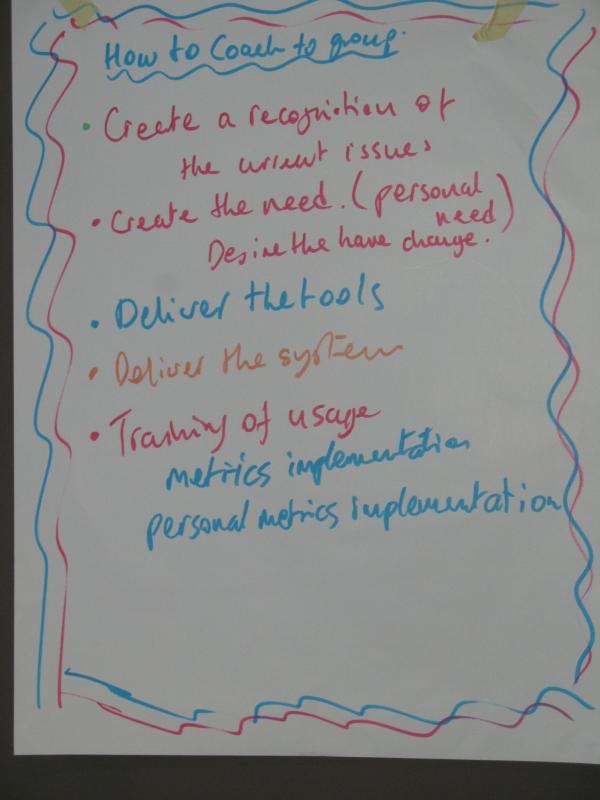 How to Coach to group.
• Create a recognition of
the current issues
• Create the need. (personal
need)
Desire the have change.
• Deliver the tools
• Deliver the system
• Training of usage
metrics implementation
personal metrics implementation